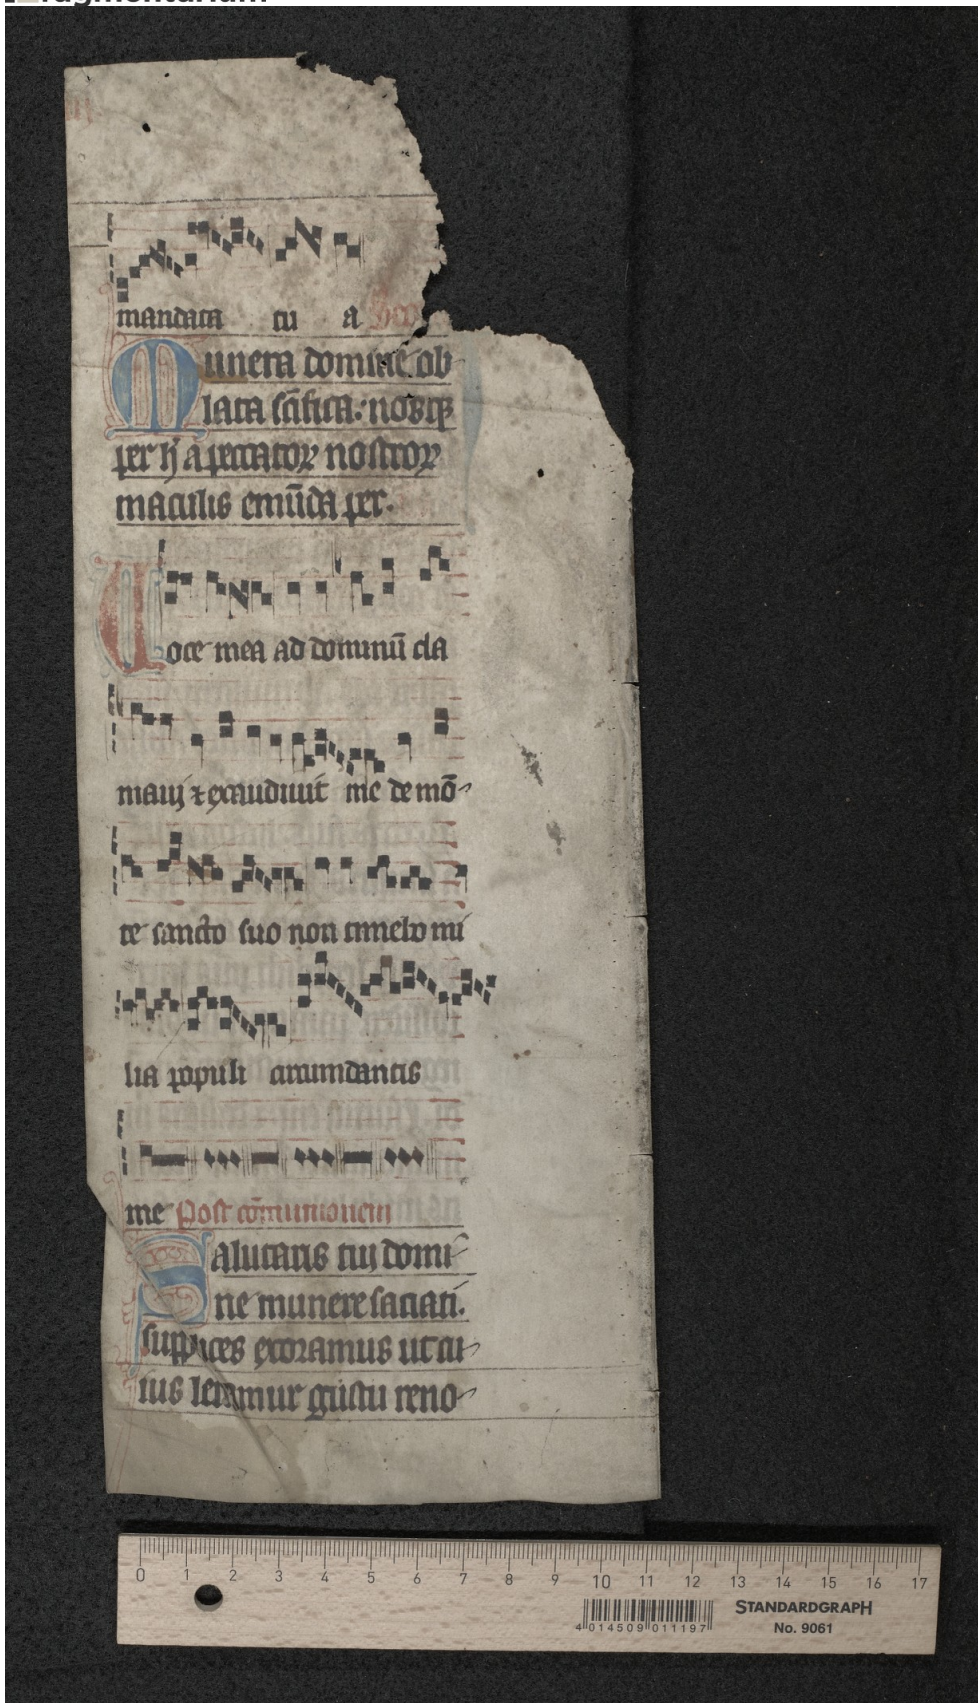 mandata tu a Secr
Munera domine ob
lata sc̄ifica: nobisqꝫ
per h̄ a peccatoꝝ nostroꝝ
maculis emūda per.
Uoce mea ad dominū cla
maui ⁊ exaudiuit me de mō
te sancto suo non timebo mi
lia populi circumdantis
me Post cōmunionem
Salutaris tui domi
ne munere saciati.
supplices exoramus ut cu
ius letamur gustu reno
0 1 2 3 4 5 6 7 8 9 10 11 12 13 14 15 16 17
STANDARDGRAPH
No. 9061
4 014509 011197